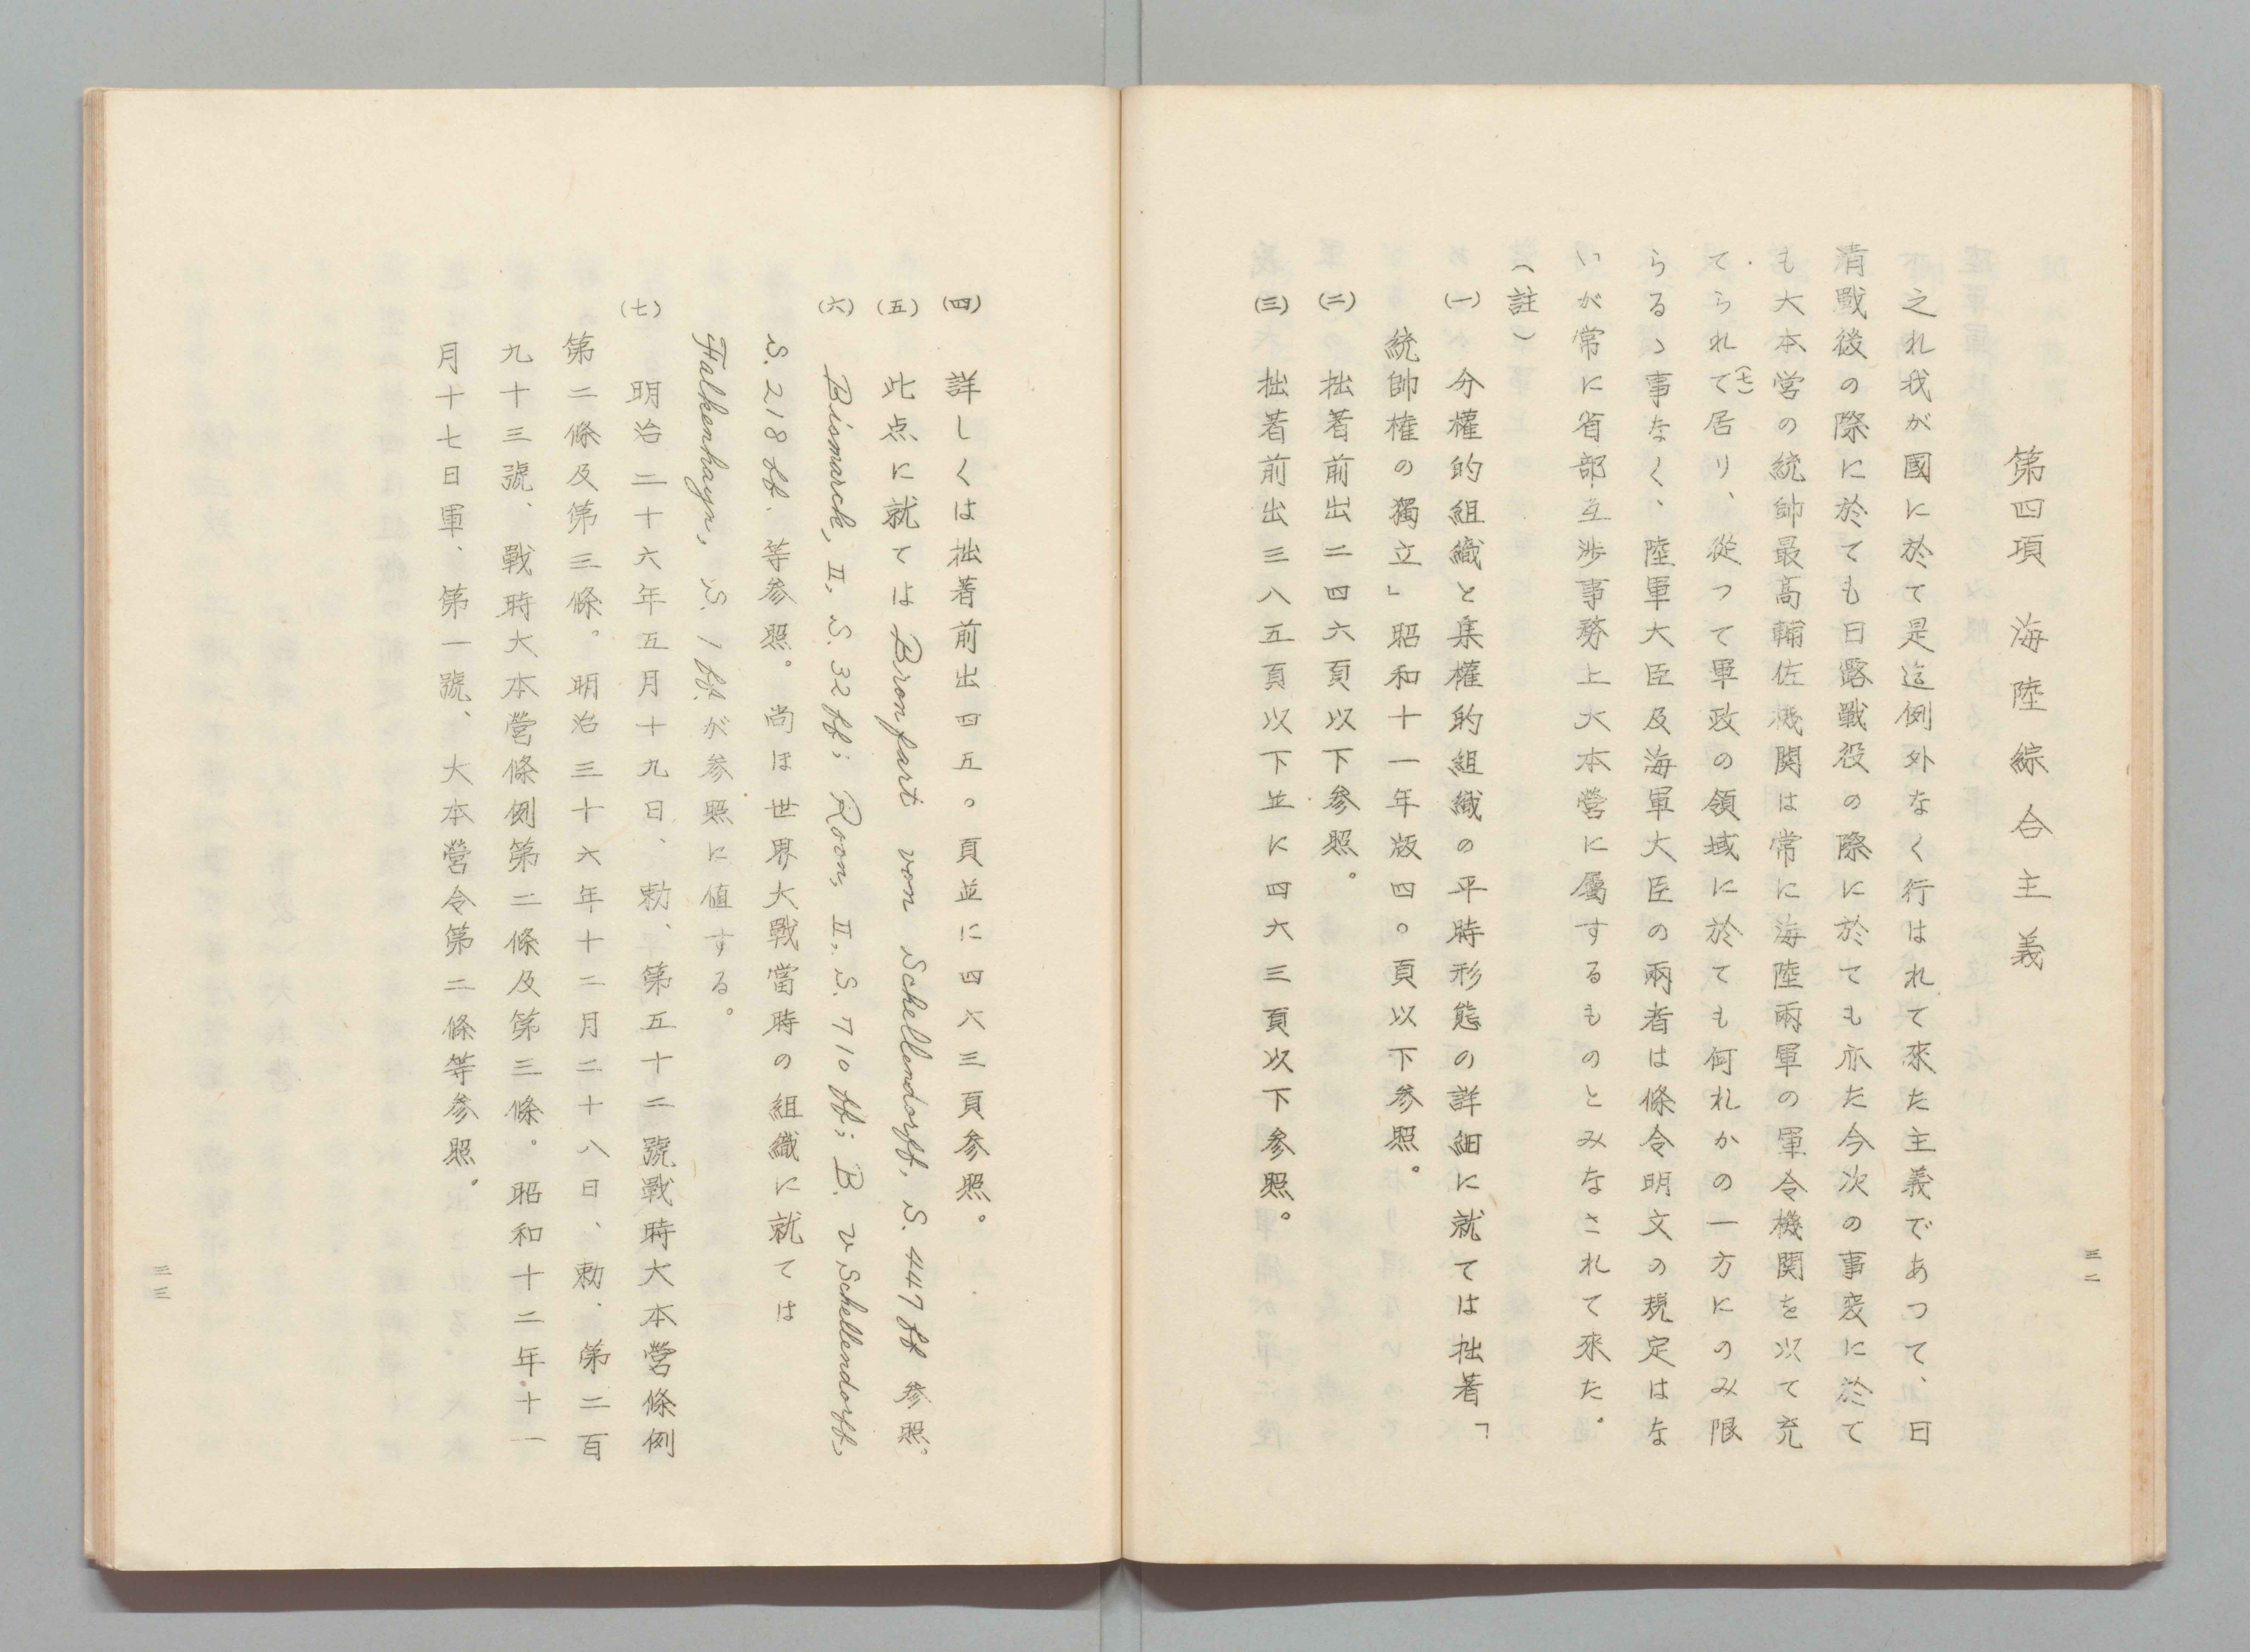 第四項　海陸綜合主義
之れ我が國に於て是迄例外なく行はれて來た主義であつて、日
清戰後の際に於ても日露戰役の際に於ても亦た今次の事変に於て
も大本営の統帥最高輔佐機関は常に海陸兩軍の軍令機関を以て充
てられて(七)居り、從つて軍政の領域に於ても何れかの一方にのみ限
らるゝ事なく、陸軍大臣及海軍大臣の兩者は條令明文の規定はな
いが常に省部互渉事務上大本營に屬するものとみなされて來た。
（註）
(一)　分權的組織と集權的組織の平時形態の詳細に就ては拙著「
統帥権の獨立」昭和十一年版四〇頁以下参照。
(二)　拙著前出二四六頁以下参照。
(三)　拙著前出三八五頁以下並に四六三頁以下参照。
三二
(四)　詳しくは拙著前出四五〇頁並に四六三頁参照。
(五)　此点に就ては Bronfart von Schellendorff, S. 447 ff 参照。
(六)　Bismarck, II, S. 32 ff; Roon, II, S. 710 ff; B. v. Schellendorff,
S. 218 ff. 等参照。尚ほ世界大戰當時の組織に就ては
Falkenhayn, S. 1 ff. が参照に値する。
(七)　明治二十六年五月十九日、勅、第五十二號戰時大本營條例
第二條及第三條。明治三十六年十二月二十八日、勅、第二百
九十三號、戰時大本營條例第二條及第三條。昭和十二年十一
月十七日軍、第一號、大本營令第二條等参照。
三三